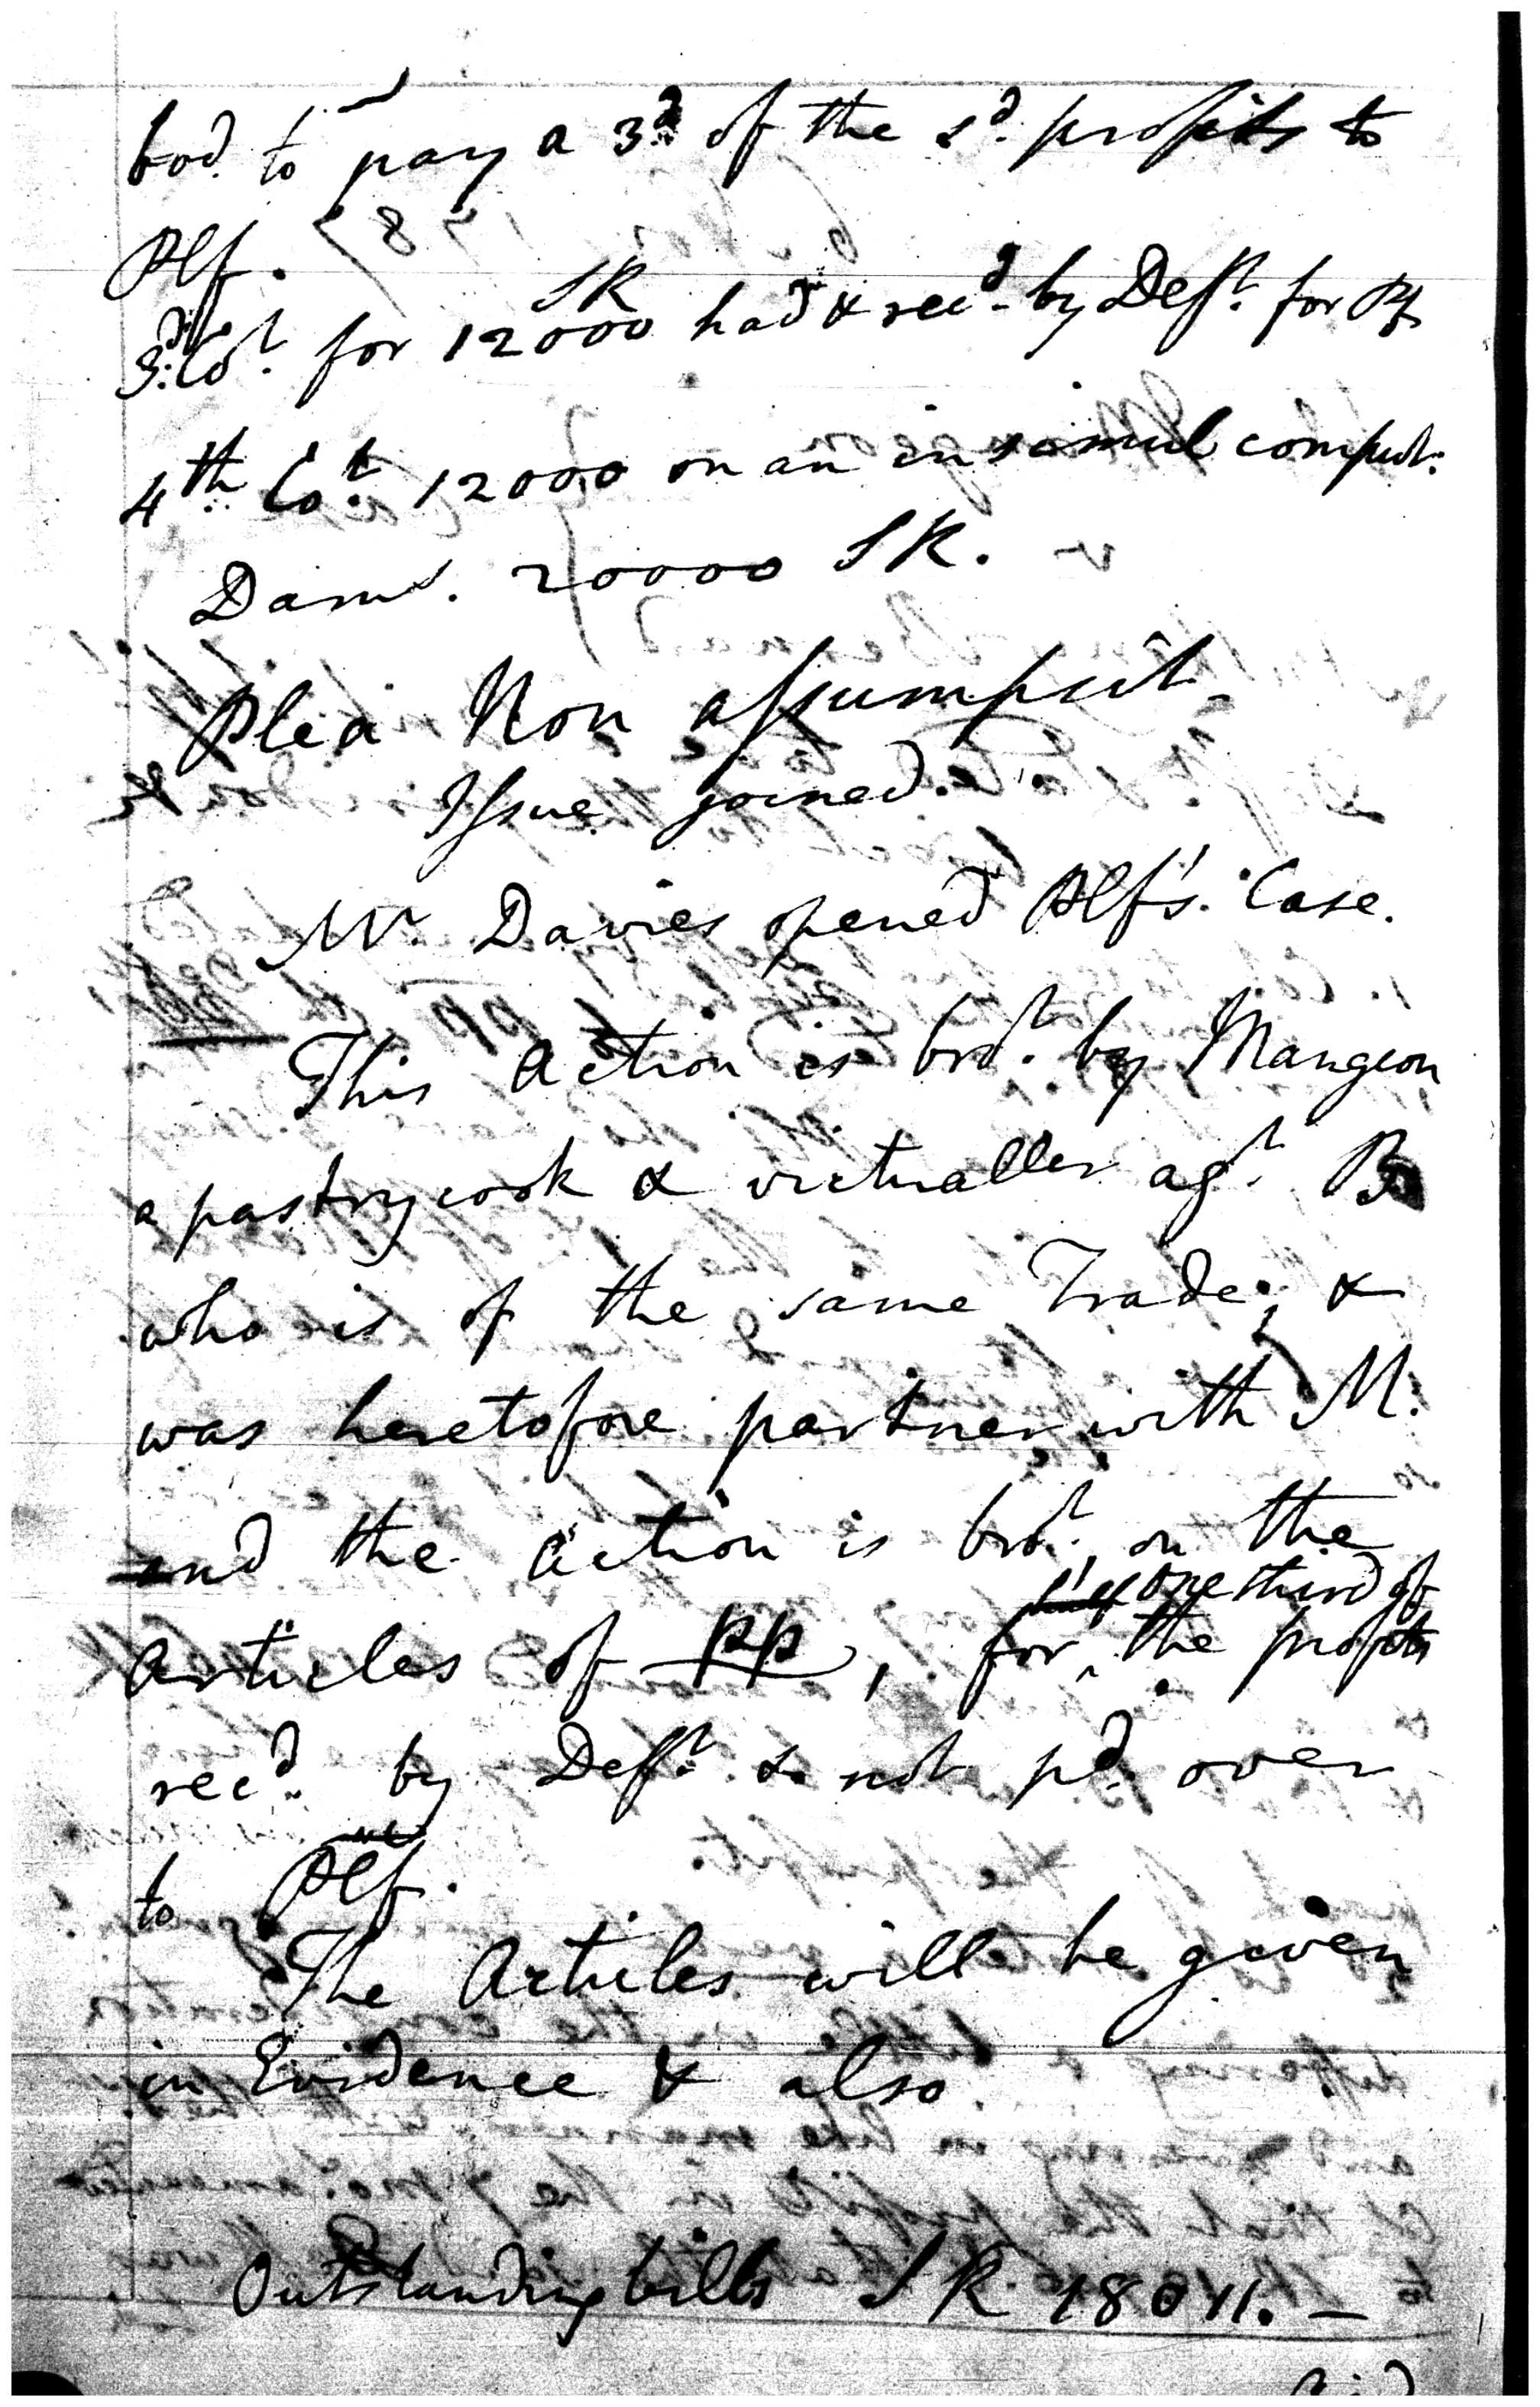 bod. to pay a 3d. of the sd. profits to
Plf.
3d. Cot. for SR 12000 had & recd. by Deft. for Plf
4th Cot. 12000 on an insimul comput:
Dams. 20000 SR.
Plea Non assumpsit.
Issue joined.
Mr. Davies opened Plf's. Case.
This Action is brot. by Mangeon
a pastrycook & victualler agt. B
who is of the same Trade; &
was heretofore partner with M.
and the Action is brot. on the
one third of
Articles of pp, for the profits
recd. by Deft. & not pd. over
to Plf.
The Articles will be given
in Evidence & also
Outstanding bills SR 18011. —